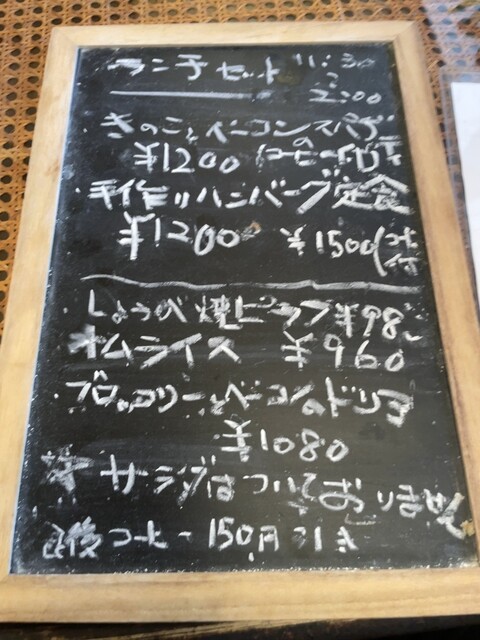 ランチセット 11:30
〜
2:00
きのことベーコンのスパゲ
¥1200 コーヒー付
手作りハンバーグ定食
¥1200 ¥1500(コーヒー付
しょうが焼ピラフ ¥98
オムライス ¥960
ブロッコリーとベーコンのドリア
¥1080
※サラダはついておりません
食後コーヒー150円引き